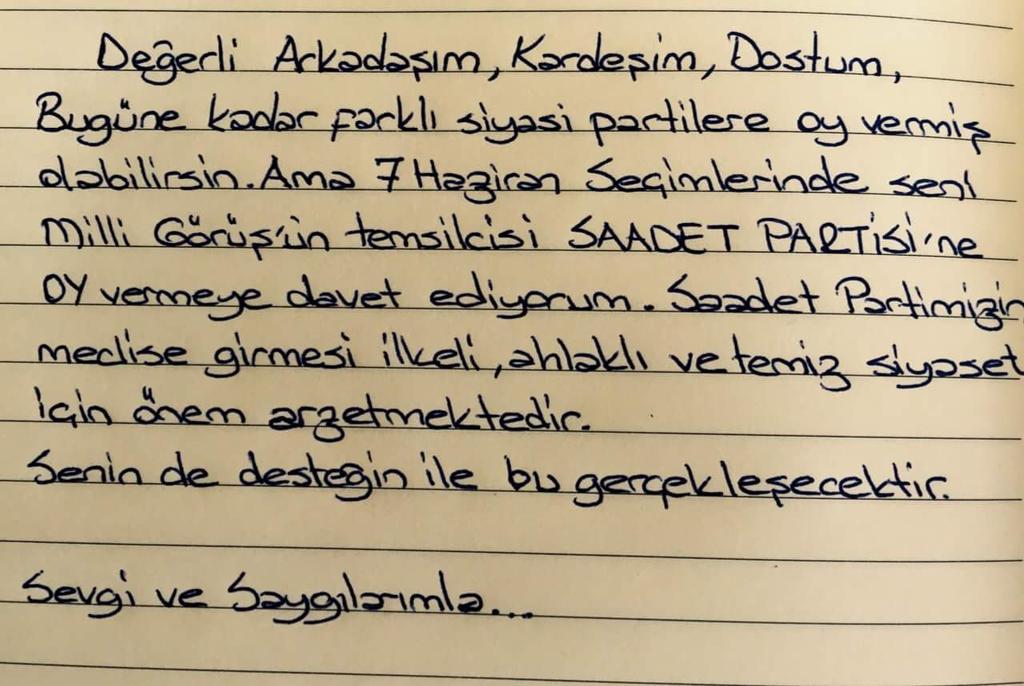 Değerli Arkadaşım, Kardeşim, Dostum,
Bugüne kadar farklı siyasi partilere oy vermiş
olabilirsin. Ama 7 Haziran Seçimlerinde seni
Milli Görüş'ün temsilcisi SAADET PARTİSİ'ne
OY vermeye davet ediyorum. Saadet Partimizin
meclise girmesi ilkeli, ahlaklı ve temiz siyaset
için önem arzetmektedir.
Senin de desteğin ile bu gerçekleşecektir.
Sevgi ve Saygılarımla...